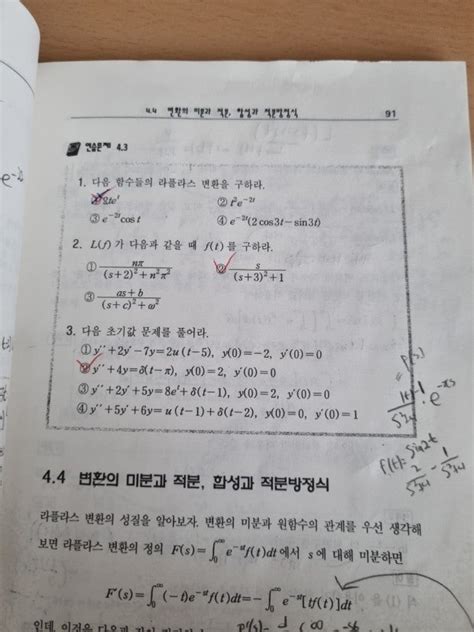 4.4 변환의 미분과 적분, 합성과 적분방정식 91
연습문제 4.3
1. 다음 함수들의 라플라스 변환을 구하라.
① 2te^t ② t²e^{-2t}
③ e^{-2t}cos t ④ e^{-2t}(2cos3t−sin3t)
2. L(f)가 다음과 같을 때 f(t)를 구하라.
① nπ/((s+2)²+n²π²) ② s/((s+3)²+1)
③ (as+b)/((s+c)²+ω²)
3. 다음 초기값 문제를 풀어라.
① y''+2y'−7y=2u(t−5), y(0)=−2, y'(0)=0
② y''+4y=δ(t−π), y(0)=2, y'(0)=0
③ y''+2y'+5y=8e^t+δ(t−1), y(0)=2, y'(0)=0
④ y''+5y'+6y=u(t−1)+δ(t−2), y(0)=0, y'(0)=1
4.4 변환의 미분과 적분, 합성과 적분방정식
라플라스 변환의 성질을 알아보자. 변환의 미분과 원함수의 관계를 우선 생각해
보면 라플라스 변환의 정의 F(s)=∫₀^∞ e^{-st}f(t)dt에서 s에 대해 미분하면
F'(s)=∫₀^∞(−t)e^{-st}f(t)dt=−∫₀^∞ e^{-st}[tf(t)]dt